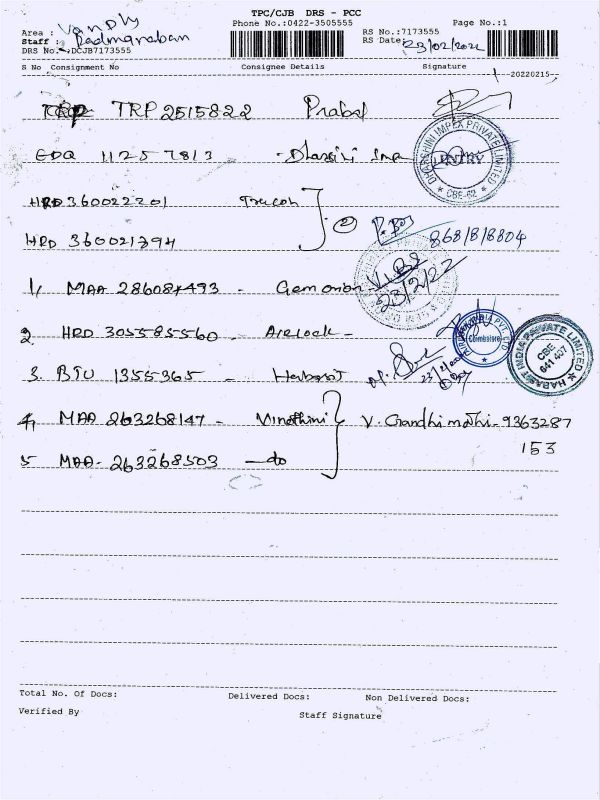 TPC/CJB DRS - PCC
Phone No.:0422-3505555
Page No.:1
Area :
Staff : Padmanaban
DRS No.:DCJB7173555
RS No.:7173555
RS Date: 23/02/2022
S No Consignment No Consignee Details Signature
--20220215--
TRP 2515822 Prabal
EDQ 11257813
DHANSHINI IMPEX PRIVATE LIMITED
ENTRY
* CBE-62 *
HRD 360022201 Trucon
2
HRD 360021394 868/8/8804
23/2/22
1, MAA 286084493 - Gem onion -
2 HRD 305585560 - Airlock -
Coimbatore
3. BTU 1355365 - Habasit
HABASIT INDIA PRIVATE LIMITED
CBE
641 407
4, MAA 263268147 - Vinothini V. Gandhimathi - 9363287
153
5 MAA - 263268503 - do
Total No. Of Docs: Delivered Docs: Non Delivered Docs:
Verified By
Staff Signature